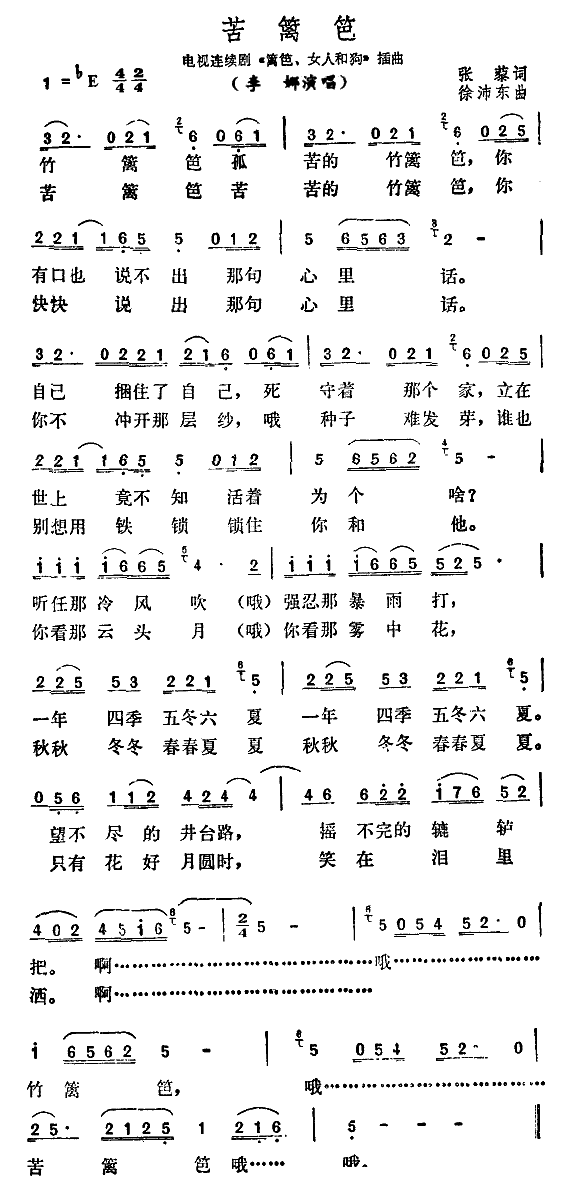 苦篱笆
电视连续剧《篱笆、女人和狗》插曲
1=bE 4/4 2/4
(李娜演唱)
张藜词
徐沛东曲
32· 021 2 6 061 | 32· 021 2 6 025 |
竹 篱 笆 孤 苦的 竹篱 笆,你
苦 篱 笆 苦 苦的 竹篱 笆,你
221 165 5 012 | 5 6563 3 2 - |
有口也 说不 出 那句 心里 话。
快快 说 出 那句 心里 话。
32· 0221 216 061 | 32· 021 2 6 025 |
自己 捆住了 自己,死 守着 那个 家,立在
你不 冲开那 层纱,哦 种子 难发 芽,谁也
221 165 5 012 | 5 6562 4 5 - |
世上 竟不 知 活着 为个 啥?
别想用 铁 锁 锁住 你和 他。
iii i665 5 4· 2 | iii i665 525· |
听任那 冷 风 吹 (哦) 强忍那 暴 雨 打,
你看那 云 头 月 (哦) 你看那 雾 中 花,
225 53 221 6 5 | 225 53 221 6 5 |
一年 四季 五冬六 夏 一年 四季 五冬六 夏。
秋秋 冬冬 春春夏 夏 秋秋 冬冬 春春夏 夏。
056 112 424 4 | 46 622 i76 52 |
望不 尽的 井台路, 摇 不完的 辘 轳
只有 花好 月圆时, 笑在 泪里
402 45i6 6 5- | 2/4 5 - | 6 5 054 52· 0 |
把。 啊……………………………哦………………
洒。 啊……………………………
i 6562 5 - | 6 5 054 52· 0 |
竹 篱 笆, 哦…………………………
25· 2125 1 216 | 5 - - - |
苦 篱 笆 哦…… 哦。